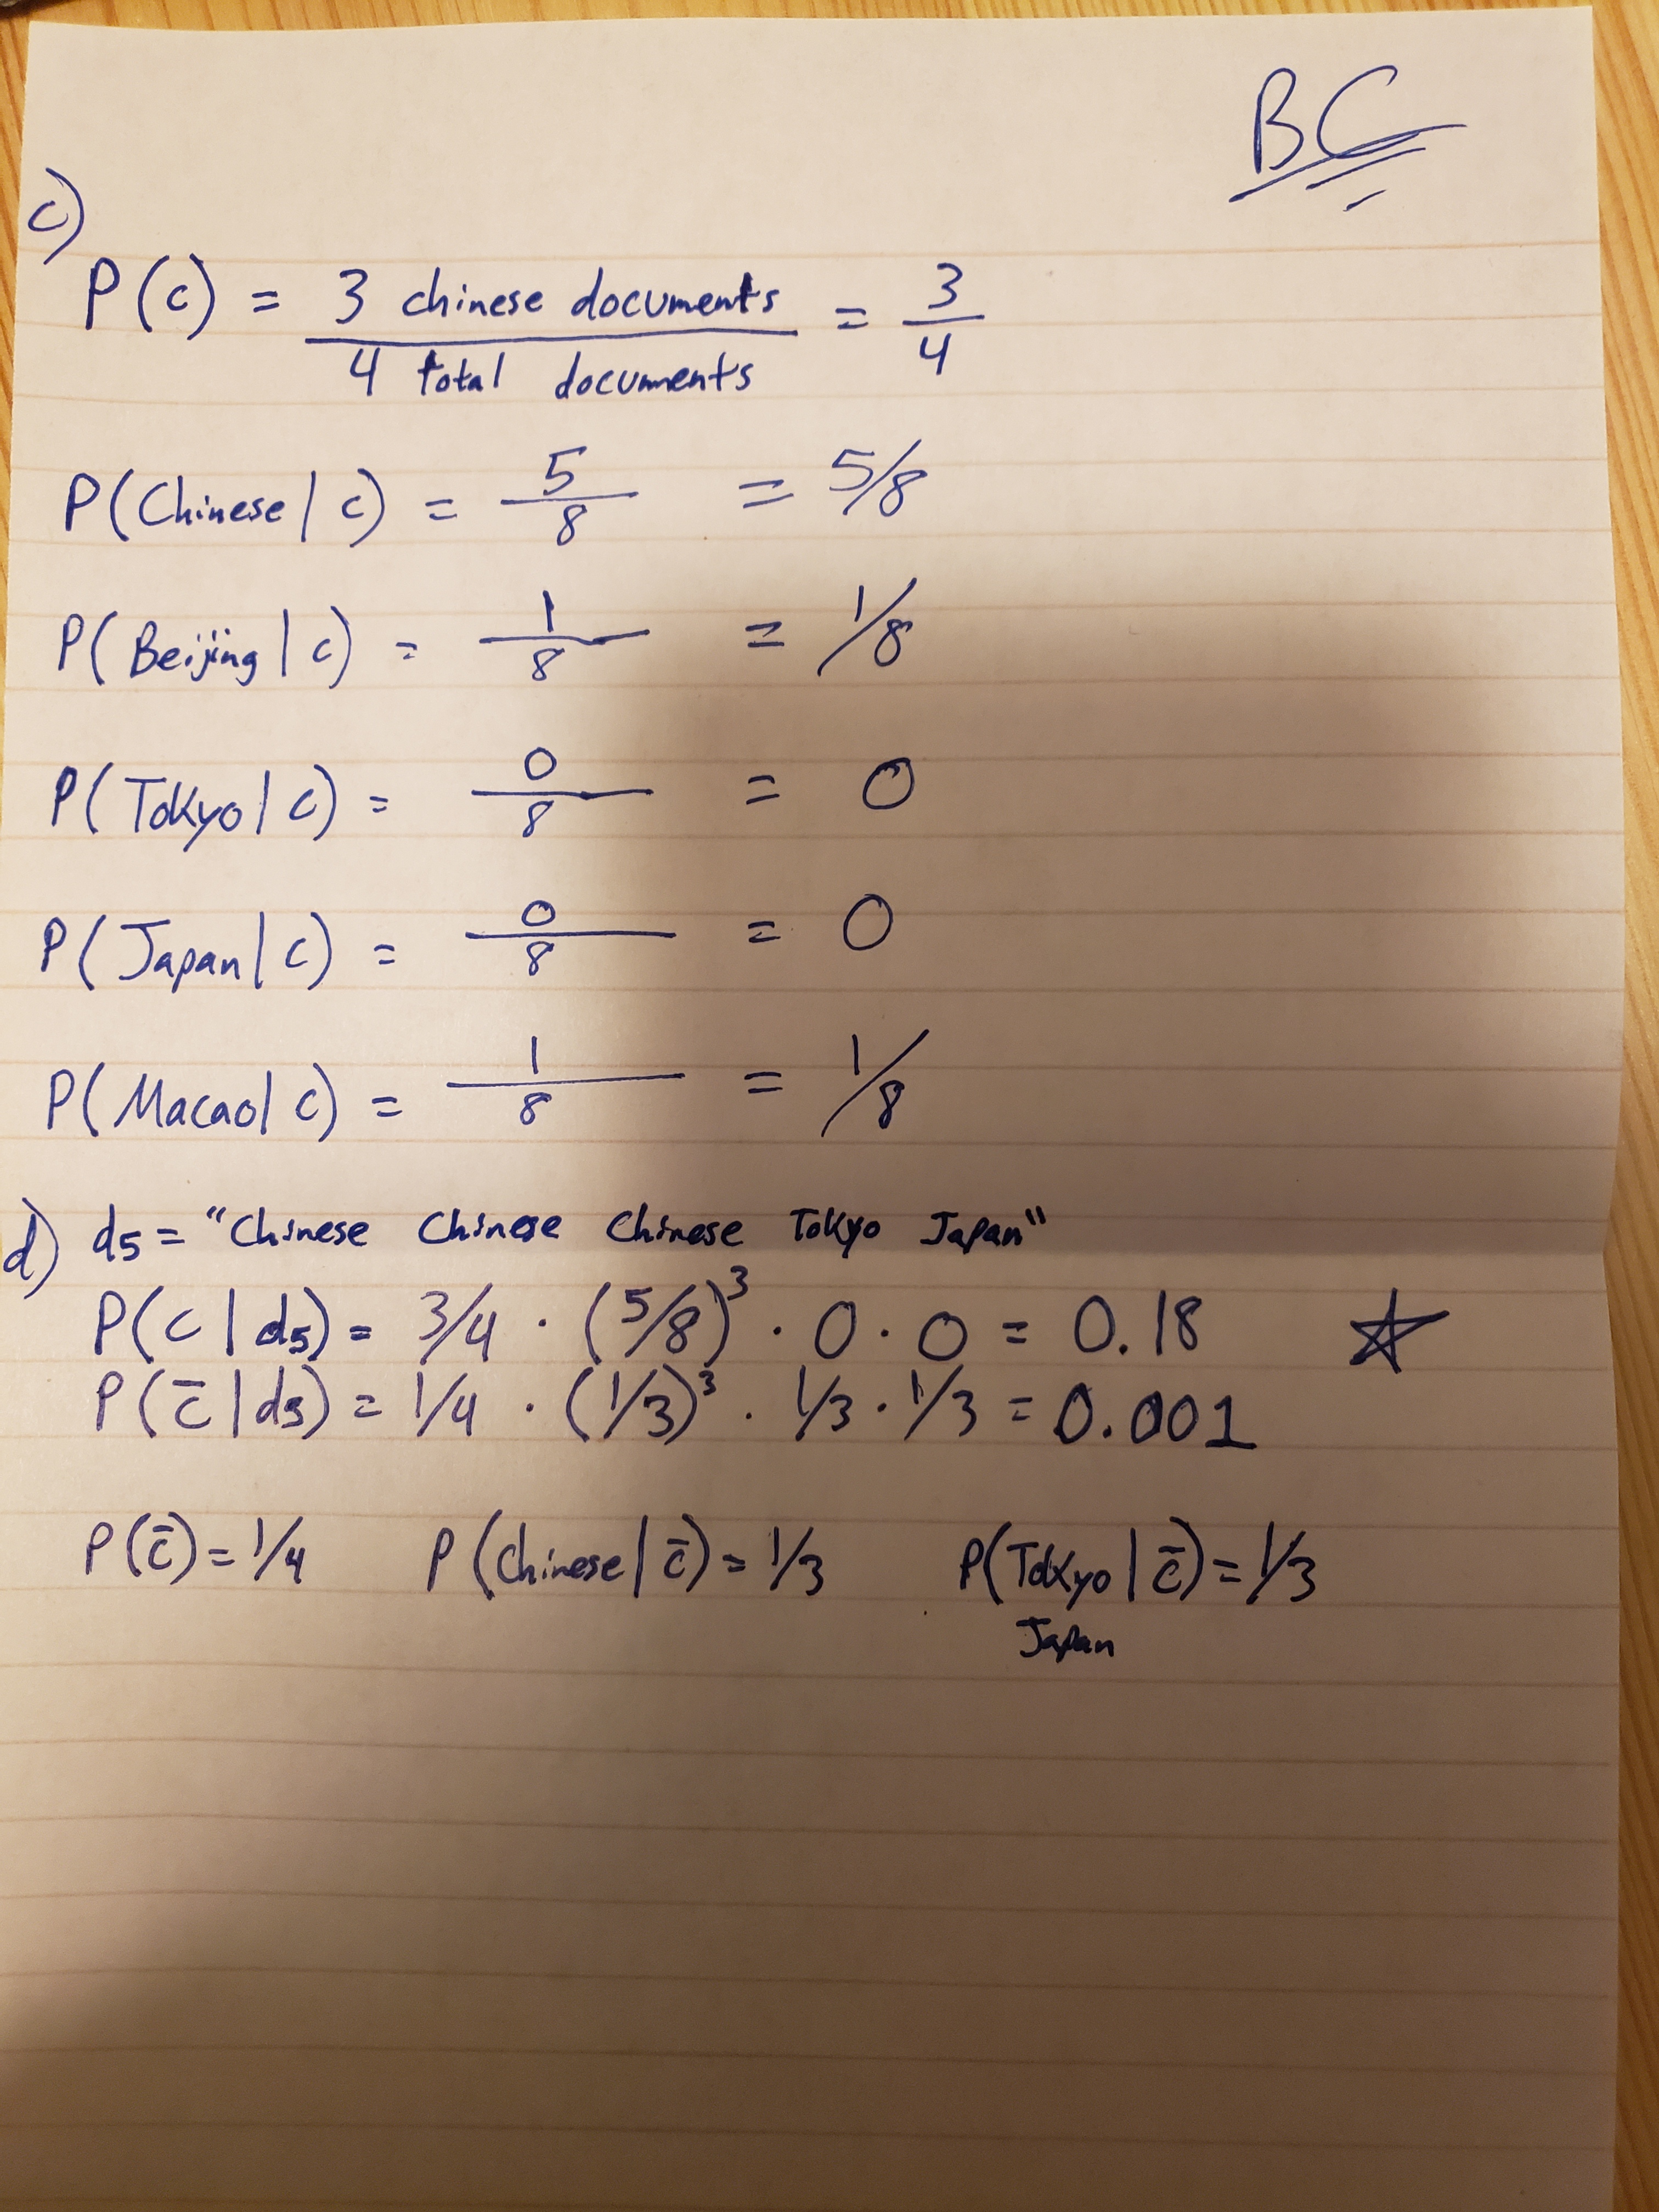 BC
c)
P(c) = 3 chinese documents / 4 total documents = 3/4
P(Chinese | c) = 5/8 = 5/8
P(Beijing | c) = 1/8 = 1/8
P(Tokyo | c) = 0/8 = 0
P(Japan | c) = 0/8 = 0
P(Macao | c) = 1/8 = 1/8
d) d5 = "Chinese Chinese Chinese Tokyo Japan"
P(c | d5) = 3/4 · (5/8)³ · 0 · 0 = 0.18 ☆
P(c̄ | d5) = 1/4 · (1/3)³ · 1/3 · 1/3 = 0.001
P(c̄) = 1/4 P(Chinese | c̄) = 1/3 P(Tokyo | c̄) = 1/3
Japan